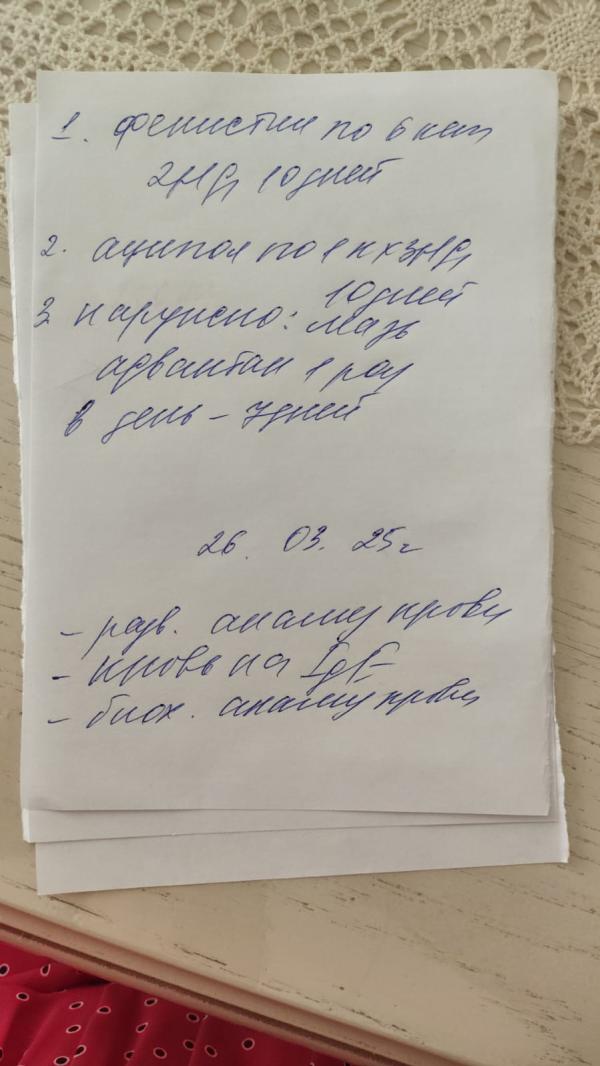 1. Фенистил по 6 кап
2р/д 10 дней
2. аципол по 1 к х 3р/д
10 дней
3. наружно: мазь
адвантан 1 раз
в день - 7 дней
26. 03. 25г
- разв. анализ крови
- кровь на IgE
- биох. анализ крови